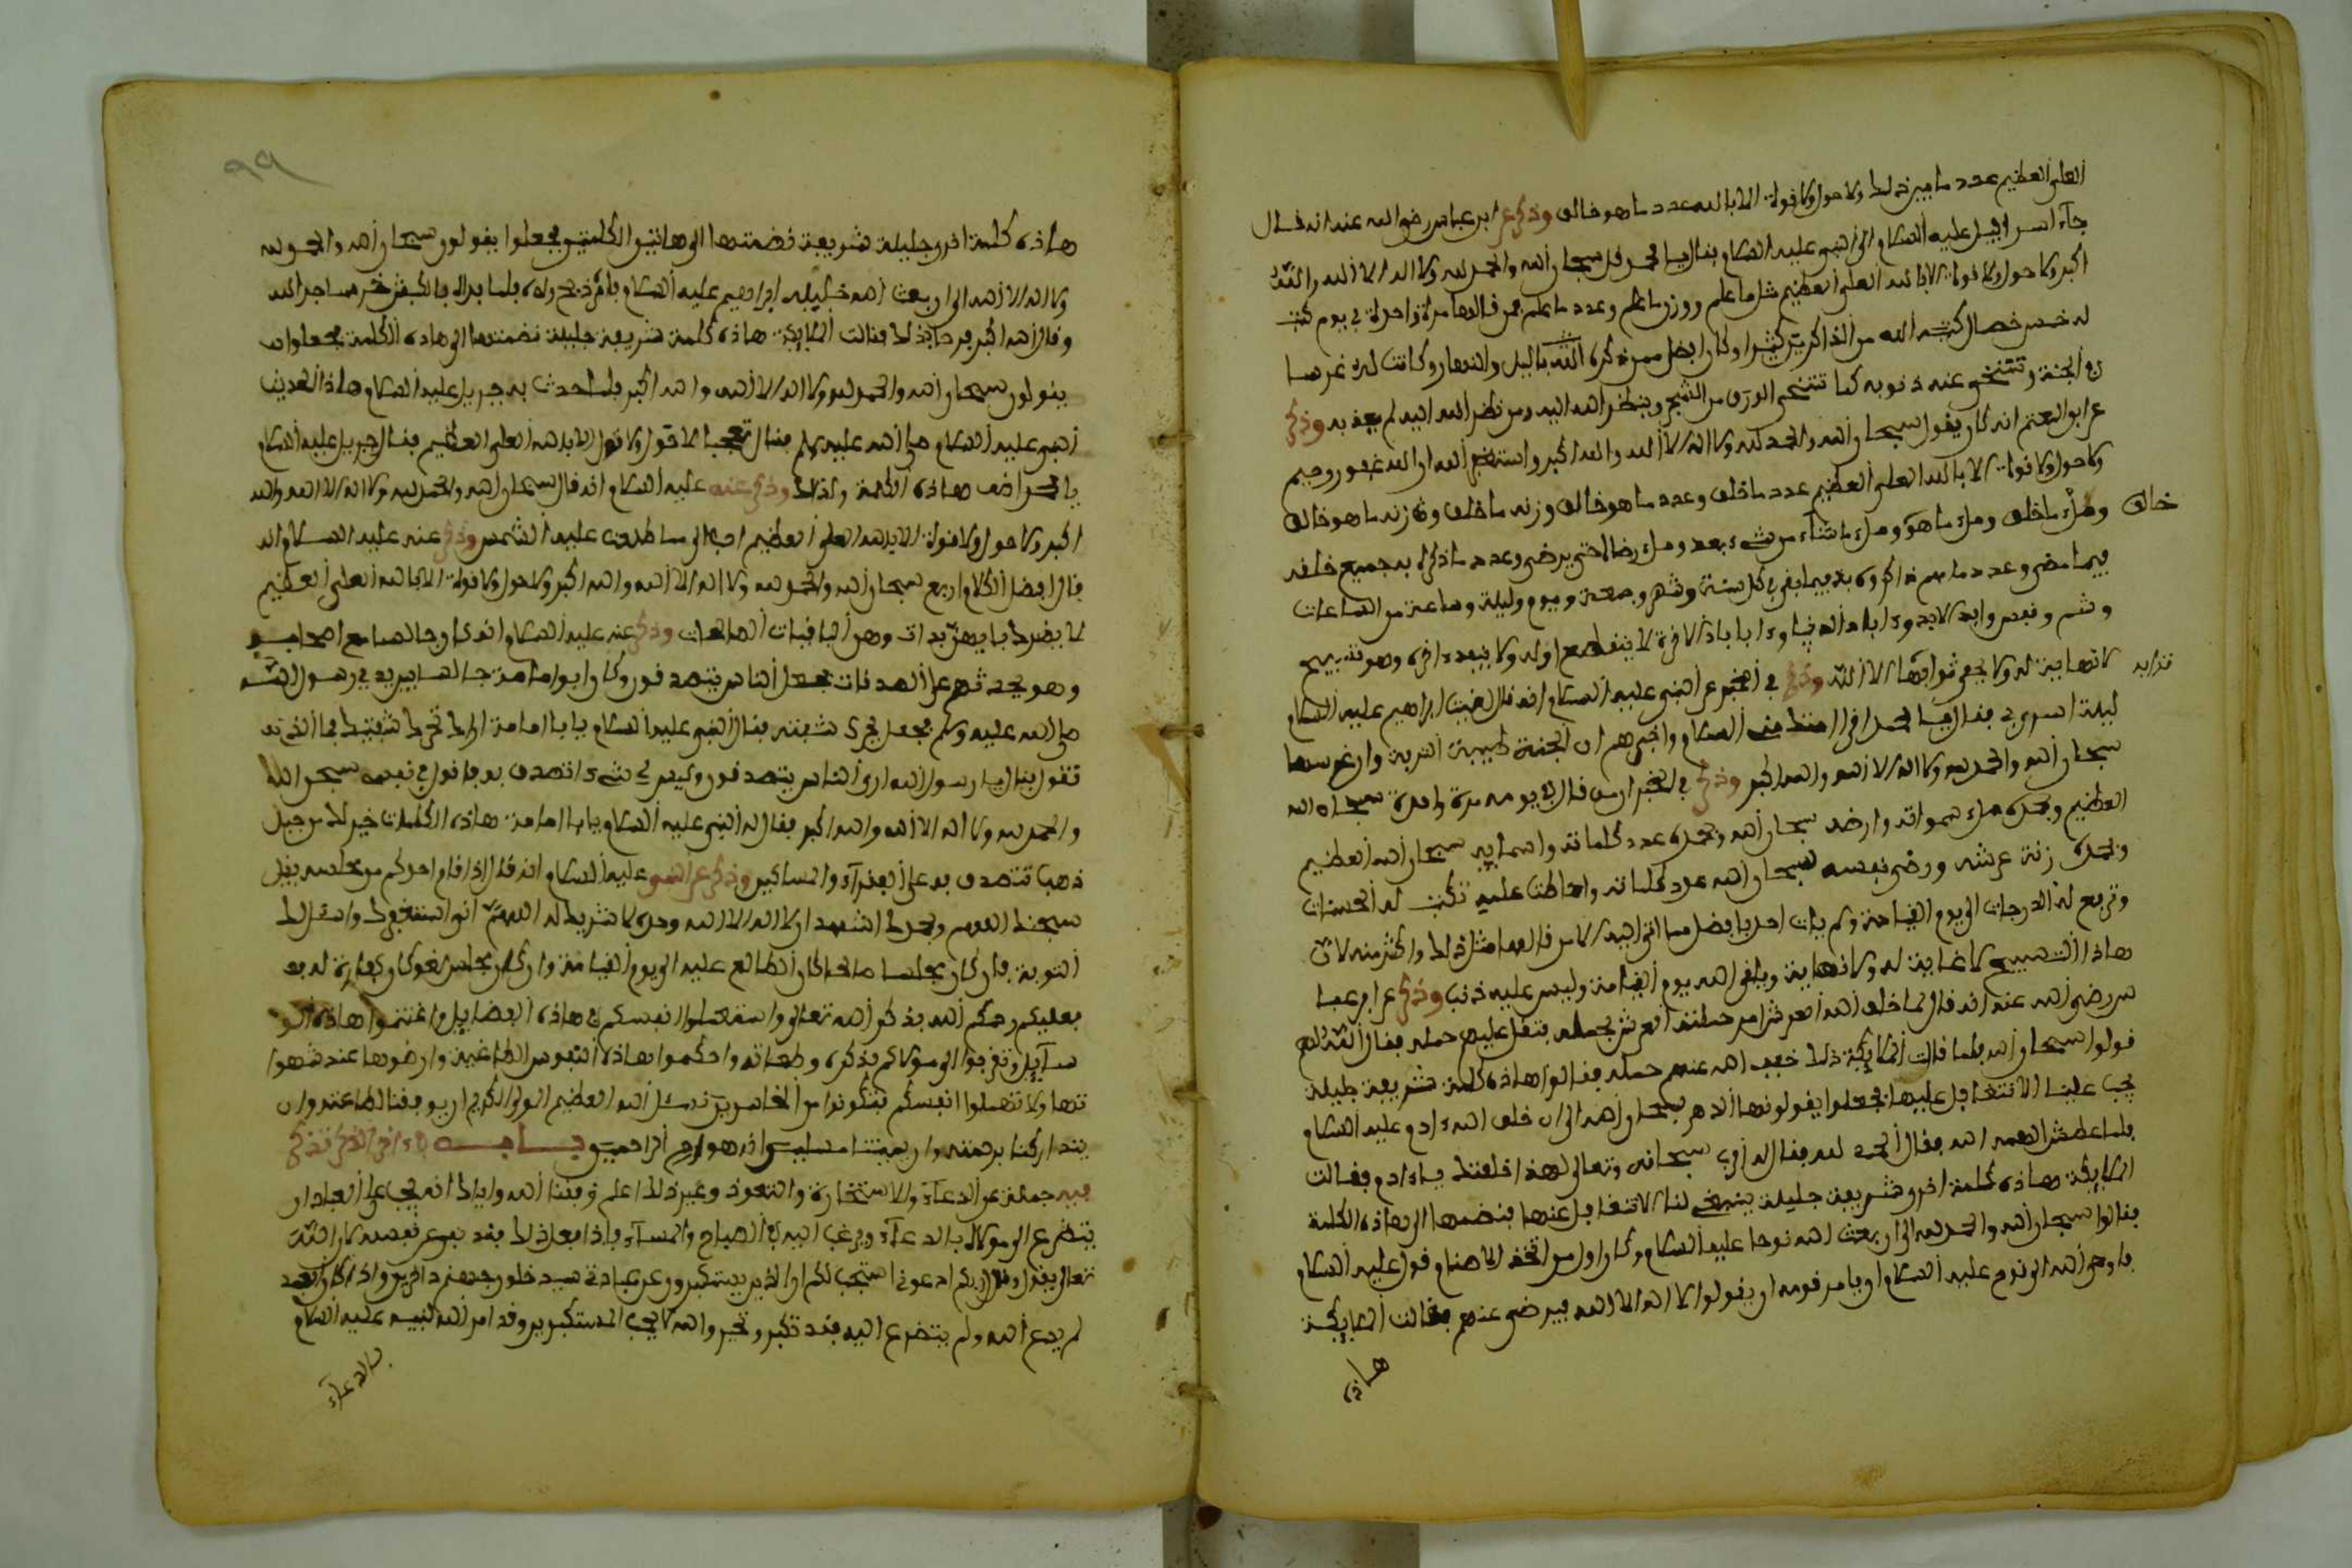 العلي العظيم عدد ما بين ذلك ولا حول ولا قوة الا بالله عدد ما هو خالق وذكر عن ابن عباس رضي الله عنه انه قال
جاء اسرافيل عليه السلام الى النبي عليه السلام فقال يا محمد قل سبحان الله والحمد لله ولا اله الا الله والله
اكبر ولا حول ولا قوة الا بالله العلي العظيم مثل ما علم ووزن ما علم وعدد ما علم فمن قالها مرة واحدة في يوم كتب
له خمس خصال كتبه الله من الذاكرين كثيرا وكان افضل ممن ذكره الله بالليل والنهار وكانت له غرسا
في الجنة وتتنحى عنه ذنوبه كما تتنحى الورق من الشجر وينظر الله اليه ومن نظر الله اليه لم يعذبه وذكر
عن ابو المعتمر انه كان يقول سبحان الله والحمد لله ولا اله الا الله والله اكبر واستغفر الله ان الله غفور رحيم
ولا حول ولا قوة الا بالله العلي العظيم عدد ما خلق وعدد ما هو خالق وزنة ما خلق وزنة ما هو خالق
وملء ما خلق وملء ما هو خالق وملء ما شاء من شيء بعد وملء رضاه حتى يرضى وعدد ما ذكره به جميع خلقه
فيما مضى وعدد ما هم ذاكروه به فيما بقي في كل سنة وشهر وجمعة ويوم وليلة وساعة من الساعات
وشم ونفس وابد الابد اباد الدنيا واباد الاخرة لا ينقطع اوله ولا ينفد اخره وهو تسبيح
لا نهاية له ولا يحصي ثوابها الا الله وذكر في الخبر عن النبي عليه السلام انه قال لقيت ابراهيم عليه السلام
ليلة اسري بي فقال يا محمد اقرا امتك مني السلام واخبرهم ان الجنة طيبة التربة وان غرسها
سبحان الله والحمد لله ولا اله الا الله والله اكبر وذكر في الخبر ان من قال في يومه مرة واحدة سبحان الله
العظيم وبحمده ملء سمواته وارضه سبحان الله وبحمده عدد كلماته واسمايه سبحان الله العظيم
وبحمده زنة عرشه ورضى نفسه سبحان الله عدد كلماته واحاطت عليه تكتب له الحسنات
وترفع له الدرجات الى يوم القيامة ولم يات احد بافضل مما اتى اليه الا من قالها مثل ذلك واكثر منه لان
هاذا التسبيح لا غاية له ولا نهاية ويلقى الله يوم القيامة وليس عليه ذنب وذكر عن ابن عبا
س رضي الله عنه انه قال لما خلق الله العرش امر حملة العرش بحمله فثقل عليهم حمله فقال الله لهم
قولوا سبحان الله فلما قالت الملايكة ذلك خفف الله عنهم حمله فقالوا هاذه كلمة شريفة جليلة
يجب علينا الا نتغافل عليها فجعلوا يقولونها الدهر سبحان الله الى ان خلق الله ادم عليه السلام
فلما عطش الهمه الله فقال الحمد لله فقال له ربي سبحانه وتعالى لهذا خلقتك يا ادم فقالت
الملايكة هاذه كلمة اخرى شريفة جليلة ينبغي لنا الا نتغافل عنها فنضمها الى هاذه الكلمة
فقالوا سبحان الله والحمد لله الى ان بعث الله نوحا عليه السلام وكان اول من اتخذ الاصنام قوم عليه السلام
فاوحى الله الى نوح عليه السلام ان يامر قومه ان يقولوا لا اله الا الله فيرضى عنهم فقالت الملايكة
هاذه
٩٩
هاذه كلمة اخرى جليلة شريفة نضمها الى هاتين الكلمتين فجعلوا يقولون سبحان الله والحمد لله
ولا اله الا الله الى ان بعث الله خليله ابراهيم عليه السلام فامر بذبح ولده فلما براه بالكبش خر ساجدا لله
وقال الله اكبر فرحا بذلك فقالت الملايكة هاذه كلمة شريفة جليلة نضمها الى هاذه الكلمة فجعلوا
يقولون سبحان الله والحمد لله ولا اله الا الله والله اكبر فلما حدث به جبريل عليه السلام هاذا الحديث
النبي عليه السلام صلى الله عليه وسلم فقال تعجبا لا حول ولا قوة الا بالله العلي العظيم فقال جبريل عليه السلام
يا محمد اضف هاذه الكلمة لذلك وذكر عنه عليه السلام انه قال سبحان الله والحمد لله ولا اله الا الله والله
اكبر ولا حول ولا قوة الا بالله العلي العظيم احب الي مما طلعت عليه الشمس وذكر عنه عليه السلام انه
قال افضل الكلام اربع سبحان الله والحمد لله ولا اله الا الله والله اكبر ولا حول ولا قوة الا بالله العلي العظيم
لا يضرك بايهن بدات وهن الباقيات الصالحات وذكر عنه عليه السلام انه كان جالسا مع اصحابه
وهو يحدثهم على الصدقات فجعل الناس يتصدقون وكان ابو امامة جالسا بين يدي رسول الله
صلى الله عليه وسلم فجعل يحرك شفتيه فقال النبي عليه السلام يا با امامة اراك تحرك شفتيك فما الذي
تقول فقال يا رسول الله ارى الناس يتصدقون وليس لي شيء اتصدق به فاقول في نفسي سبحن الله
والحمد لله ولا اله الا الله والله اكبر فقال له النبي عليه السلام يا با امامة هاذه الكلمات خير لك من جبل
ذهب تتصدق به على الفقراء والمساكين وذكر عن النبي عليه السلام انه قال اذا قام احدكم من مجلسه يقل
سبحنك اللهم وبحمدك اشهد ان لا اله الا الله وحدك لا شريك له اللهم اني استغفرك واسالك
التوبة فان كان مجلسا صالحا كان الطابع عليه الى يوم القيامة وان كان مجلس لغو كان كفارة له
فعليكم رحمكم الله بذكر الله تعالى واستعملوا انفسكم في هاذه الفضايل واغتنموا هاذه الو
سايل وتقربوا الى مولاكم بذكره وطعاته واحكموا هاذه النفوس الطاغية وارضوها عند شهوا
تها ولا تهملوا انفسكم فتكونوا من الخاسرين نسئل الله العظيم المولى الكريم ان يوفقنا لطاعته وان
يتداركنا برحمته وان يميتنا مسلمين انه هو ارحم الراحمين باب اخر نذكر
فيه جملة من الدعاء والاستخارة والتعوذ وغير ذلك اعلم وفقنا الله واياك انه يجب على العبد ان
يتضرع الى مولاه بالدعاء ويرغب اليه في الصباح والمساء فاذا فعل ذلك فقد نفع نفسه لان الله
تعالى يقول وقال ربكم ادعوني استجب لكم ان الذين يستكبرون عن عبادتي سيدخلون جهنم داخرين واذا كان العبد
لم يدع الله ولم يتضرع اليه فقد تكبر وتجبر والله لا يحب المستكبرين وقد امر الله نبيه عليه السلام
بالدعاء